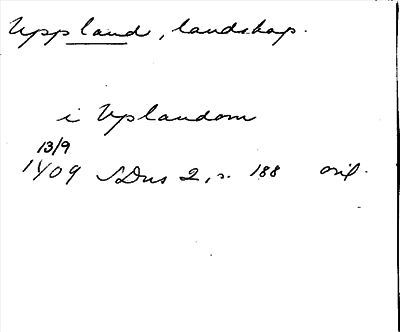 Uppland, landskap.
i Uplandom
13/9
1409 SDns 2, s. 188 orig.